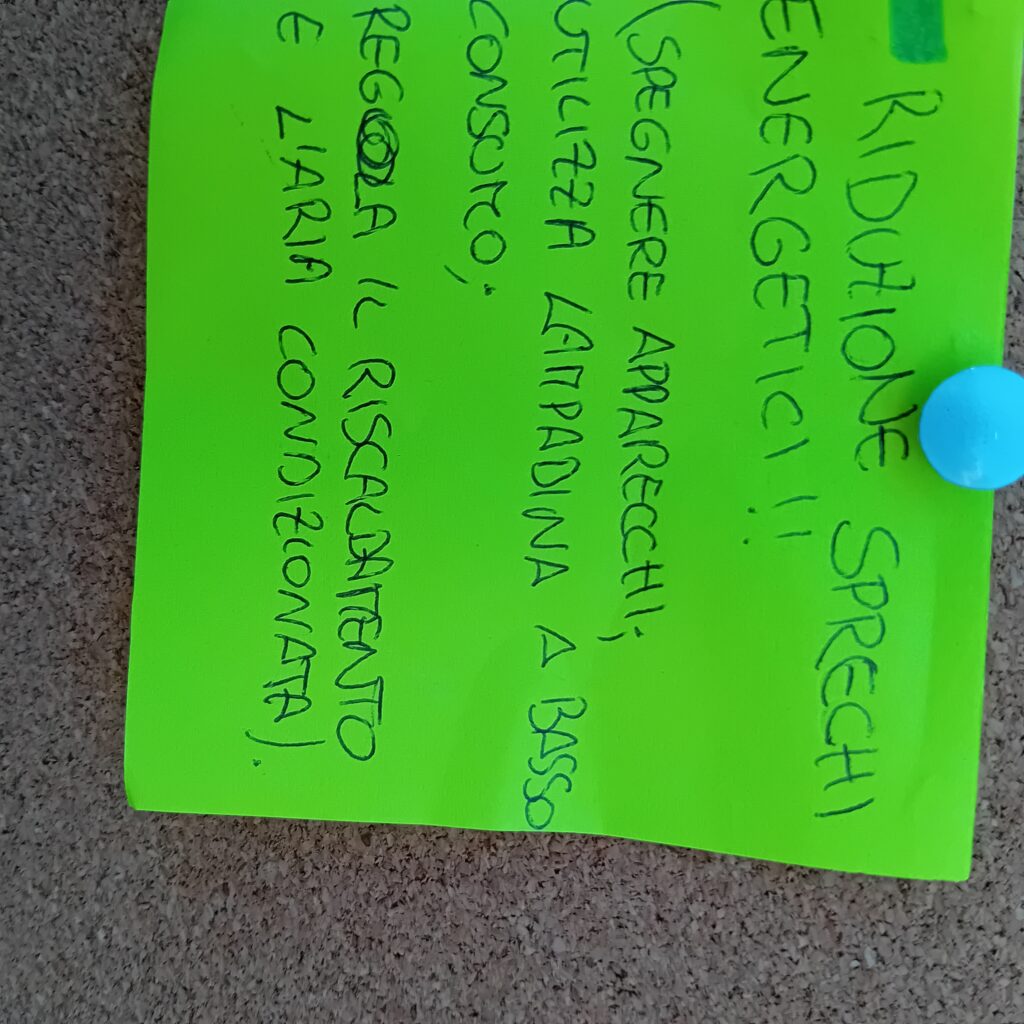 RIDUZIONE SPRECHI
ENERGETICI!!
(SPEGNERE APPARECCHI;
UTILIZZA LAMPADINA A BASSO
CONSUMO;
REGOLA IL RISCALDAMENTO
E L'ARIA CONDIZIONATA).